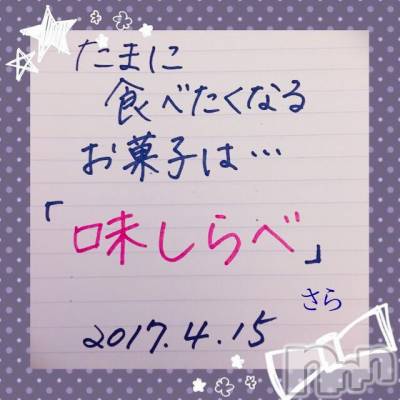 たまに
食べたくなる
お菓子は…
「味しらべ」
さら
2017.4.15